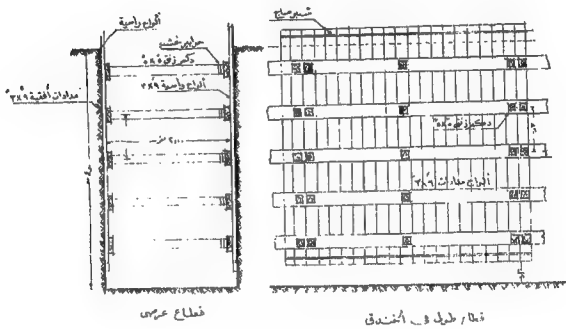 ألواح رأسية
خوابير خشب
دكم زنق ٥×٥
ألواح رأسية ٩×٢
مدادات أفقية ٩×٣
قطاع عرضى
شنبر صاج
دكم زنق ٥×٥
ألواح مدادات ٩×٣
قطاع طولى فى الخندق